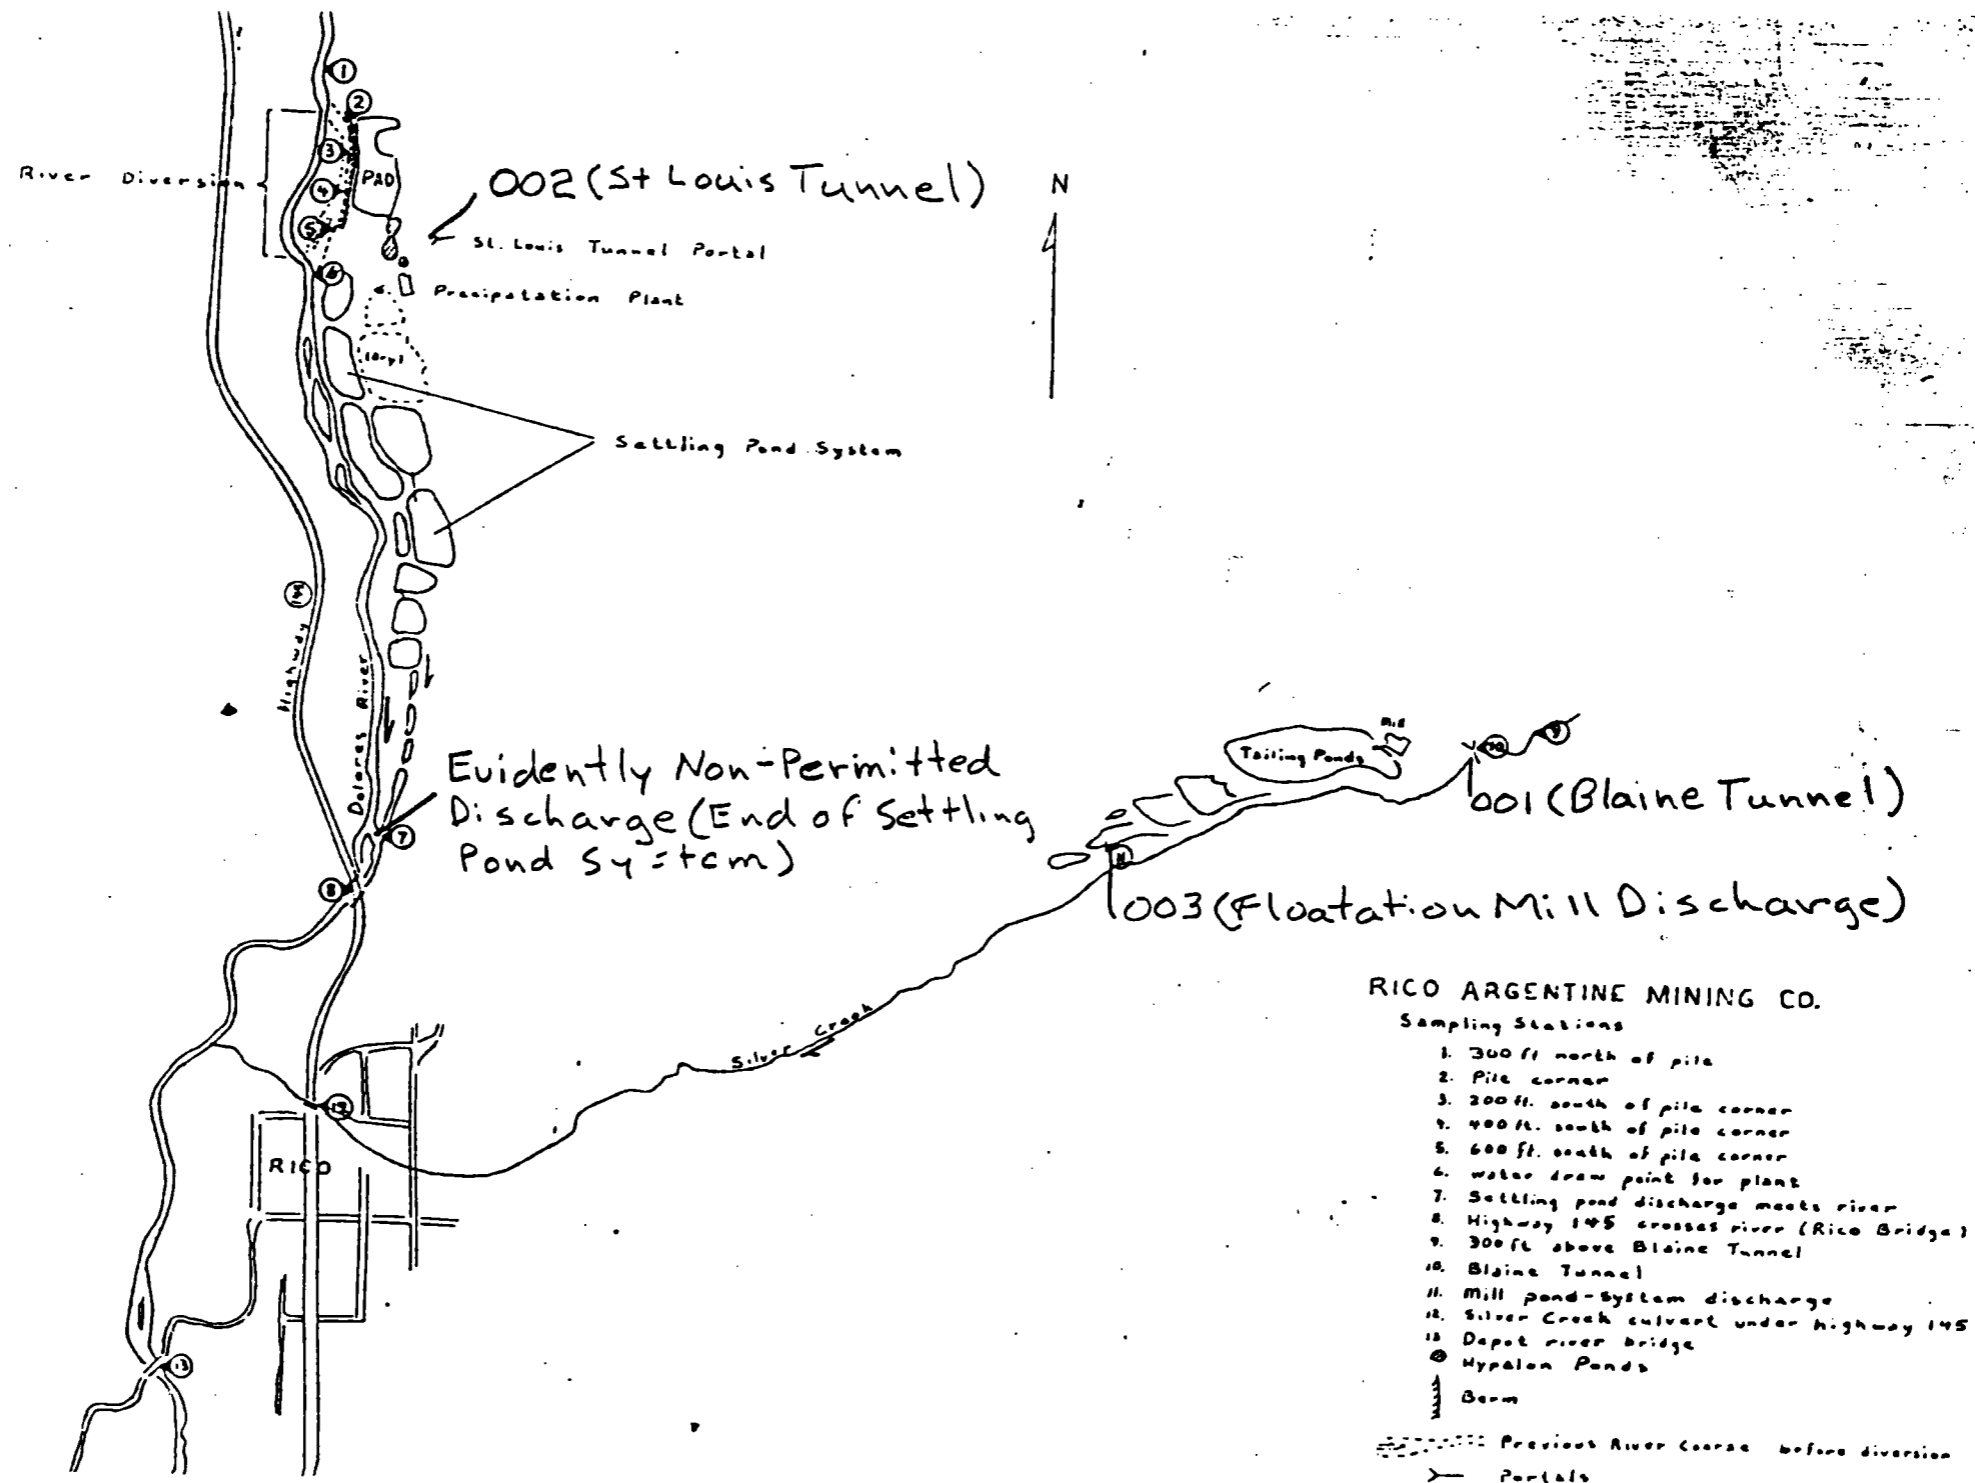 1
2
River Diversion
3
PAD
4
5
002 (St Louis Tunnel)
N
St. Louis Tunnel Portal
6
Precipatation Plant
(Dry)
Settling Pond System
145
Highway
Dolores River
Evidently Non-Permitted
Discharge (End of Settling
Pond System)
7
8
Mill
Tailing Ponds
10
9
001 (Blaine Tunnel)
11
003 (Floatation Mill Discharge)
Silver Creek
12
RICO
13
RICO ARGENTINE MINING CO.
Sampling Stations
1. 300 ft north of pile
2. Pile corner
3. 200 ft. south of pile corner
4. 400 ft. south of pile corner
5. 600 ft. south of pile corner
6. water draw point for plant
7. Settling pond discharge meets river
8. Highway 145 crosses river (Rico Bridge)
9. 300 ft above Blaine Tunnel
10. Blaine Tunnel
11. Mill pond-system discharge
12. Silver Creek culvert under highway 145
13 Depot river bridge
Hypalon Ponds
Berm
Previous River Coarse before diversion
Portals